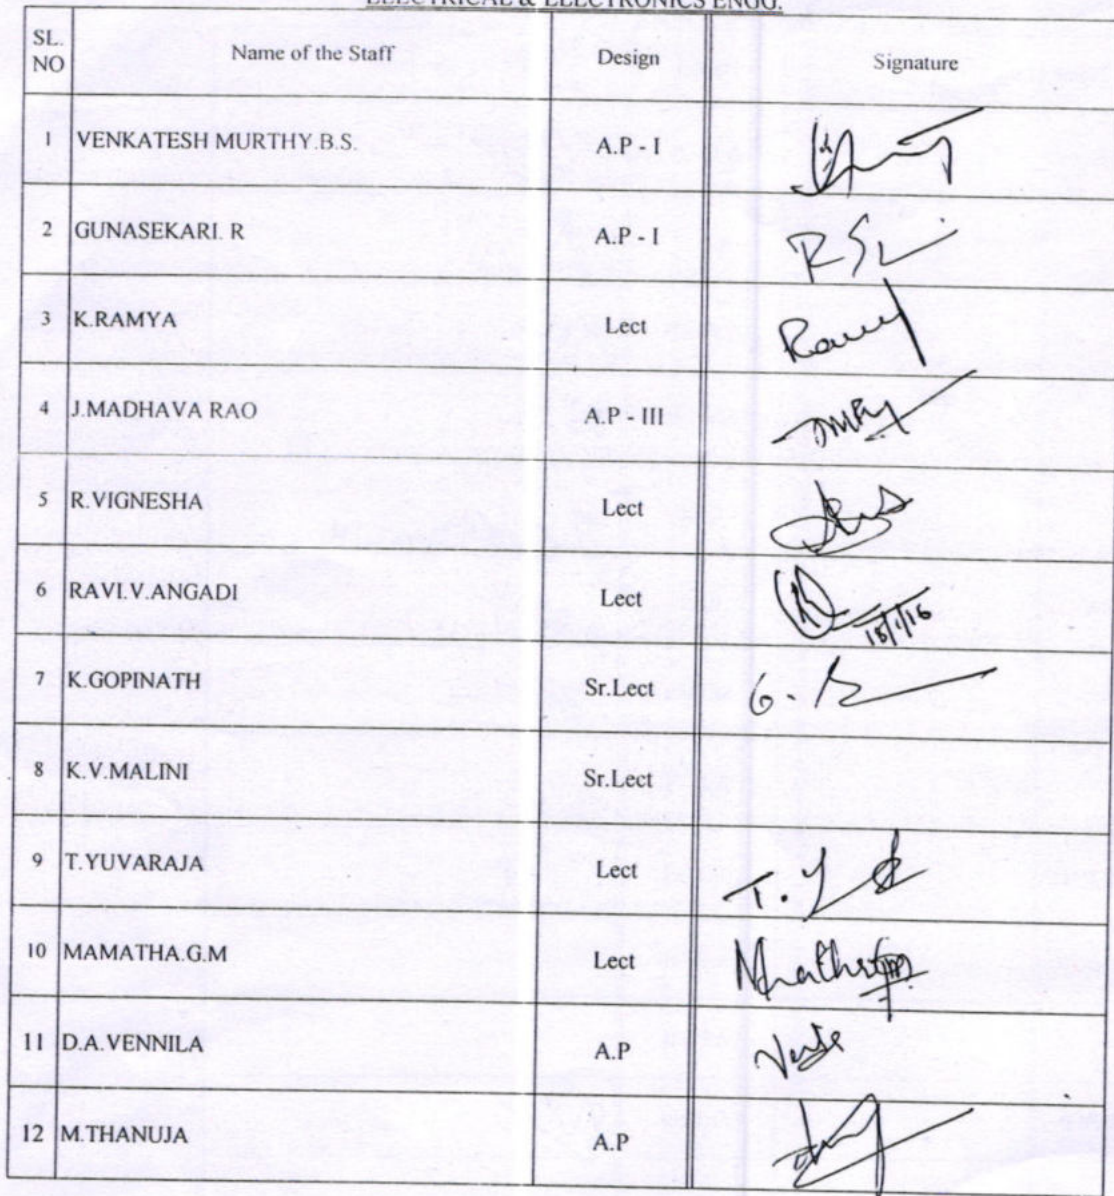 ELECTRICAL & ELECTRONICS ENGG.
SL. NO Name of the Staff Design Signature
1 VENKATESH MURTHY.B.S. A.P - I
2 GUNASEKARI. R A.P - I
3 K.RAMYA Lect
4 J.MADHAVA RAO A.P - III
5 R.VIGNESHA Lect
6 RAVI.V.ANGADI Lect
7 K.GOPINATH Sr.Lect
8 K.V.MALINI Sr.Lect
9 T.YUVARAJA Lect
10 MAMATHA.G.M Lect
11 D.A.VENNILA A.P
12 M.THANUJA A.P